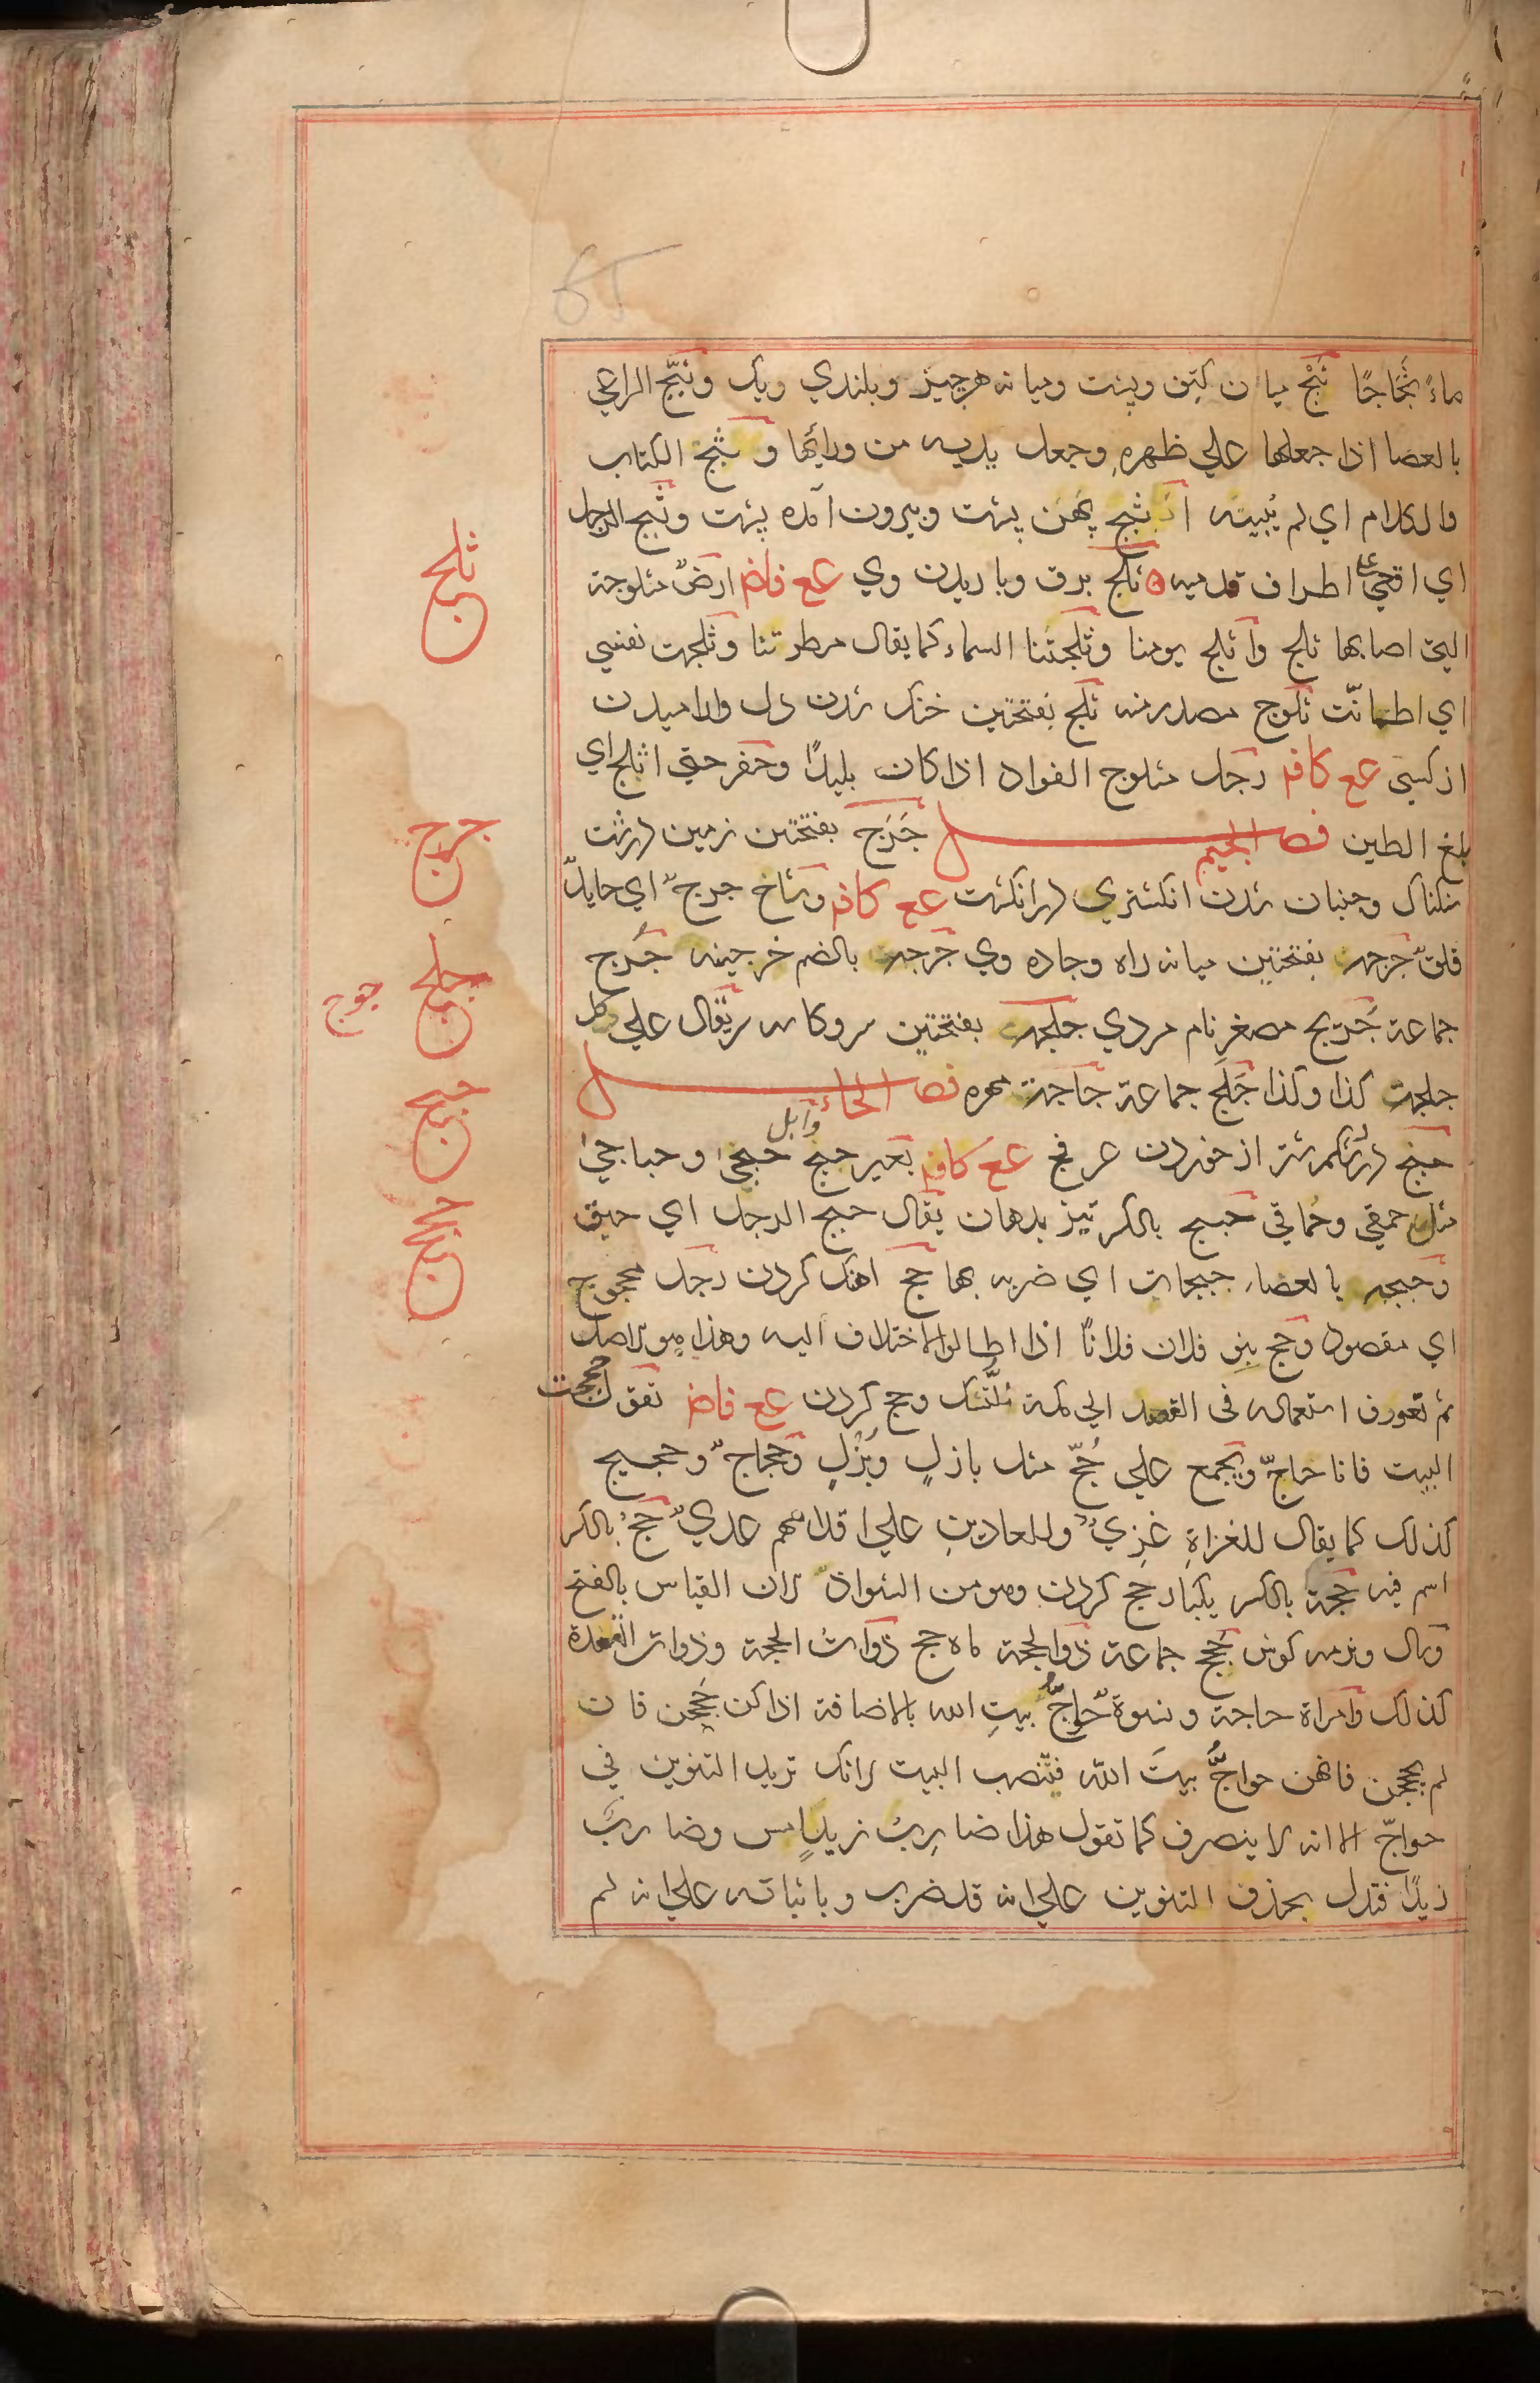 ماءً ثَجّاجًا ثَبَج ميان كتف وپشت وميانه هرچيز وبلندي ريك وثبّج الراعي
بالعصا اذا جعلها علي ظهرهِ وجعل يديه من ورائها وثبّج الكتاب
والكلام اي لم يُبيّنه اثبج پهن پشت وبيرون آمده پشت وثبج الرجل
اي اقعي علي اطراف قدميه ثلج برف وباريدن وي عع فاضم ارضٌ مثلوجة
التي اصابها ثلج واثلج يومنا وثلجتنا السماء كما يقال مطرتنا وثلجت نفسي
اي اطمانّت ثلوج مصدر منه ثلج بفتحتين خنك شدن دل واراميدن
از كسي عع كافم رجل مثلوج الفواد اذا كان بليدًا وحفر حتي اثلج اي
بلغ الطين فصل الجيم جَرَج بفتحتين زمين درشت
سنكناك وجنبان شدن انكشتري در انكشت عع كافم وشاخ جرج اي جايلٌ
قلقٌ جرجة بفتحتين ميانه راه وجاده وي جرجة بالضم خرجينه جُرج
جماعة جُريج مصغر نام مردي جلجة بفتحتين سر وكاسه سر يقال علي كل
جلجة كذا وكذا جَلَج جماعة جاجة مهره فصل الحاء
حبج درد شكم شتر از خوردن عرفج عع كافم بعير حبج وابل حبجيٰ وحباجيٰ
مثل حمقي وحُماقي حبج بالكسر تيز بدهان يقال حبج الرجل اي حبق
وحبجه بالعصا حبجات اي ضربه بها حج آهنك كردن رجل محجوج
اي مقصود وحج بنو فلان فلانًا اذا اطالوا الاختلاف اليه وهذا هو الاصل
ثم تعورف استعماله في القصد الي مكة للنسك وحج كردن عع فاضم تقول حججت
البيت فانا حاجّ ويجمع علي حُجّ مثل بازلٍ وبُزْلٍ وحجاج وحجيج
كذلك كما يقال للغزاةِ غزيٌّ وللعادين علي اقدامهم عديٌّ حجّ بالكسر
اسم فيه حجة بالكسر يكبار حج كردن وهو من الشواذ لان القياس بالفتح
وسال ونرمه كوش حِجج جماعة ذوالحجة ماه حج ذوات الحجة وذوات القعدة
كذلك وامراة حاجة ونسوة حواجُّ بيتِ الله بالاضافة اذا كن حججن فان
لم يحججن فاهن حواجُّ بيتَ الله فتنصب البيت لانك تريد التنوين في
حواجّ الا انه لا ينصرف كما تقول هذا ضاربُ زيدٍ امس وضاربٌ
زيدًا فتدل بحذف التنوين علي انه قد ضربه وباثباته علي انه لم
ثلج
جرج
جلج
جوج
حبج
حجج